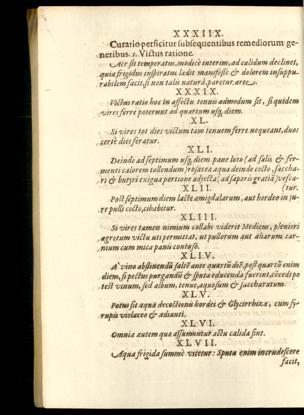 XXXIIX.
Curatio perficitur subsequentibus remediorum ge-
neribus. 1. Victus ratione.
Aër sit temperatus, modicè interim, ad calidum declinet,
quia frigidus inspiratus lædit manifestè & dolorem insuppu-
rabilem facit, si non talis naturâ, paretur arte.
XXXIX.
Victus ratio hoc in affectu tenuis admodum sit, si quidem
vires ferre poterunt ad quartum usq́; diem.
XL.
Si vires tot dies victum tam tenuem ferre nequeant, duos
certè dies feratur.
XLI.
Deinde ad septimum usq́; diem pane loto (ad salis & fer-
menti calorem tollendum) rosatea aqua deinde cocto, saccha-
ri & butyri exigua portione adjecta, ad saporis gratiâ) vesca-
XLII. (tur.
Post septimum diem lacte amigdalarum, aut hordeo in ju-
re pulli cocto, cibabitur.
XLIII.
Si vires tamen nimium collabi viderit Medicus, pleniori
ægrotum victu uti permittat, ut pullorum aut aliarum car-
nium cum mica panis contusô.
XLIV.
A vino abstinendũ saltẽ ante quartũ diẽ, post quartũ enim
diem, si pectus purgandũ & sputa educenda fuerint, cõcedi po
test vinum, sed album, tenue, aquosum & saccharatum.
XLV.
Potus sit aqua decoctionis hordei & Glycirrhizæ, cum sy-
rupis violaceo & adianti.
XLVI.
Omnia autem quæ assumuntur actu calida sint.
XLVII.
Aqua frigida summè vitetur: Sputa enim incrudescere
facit,